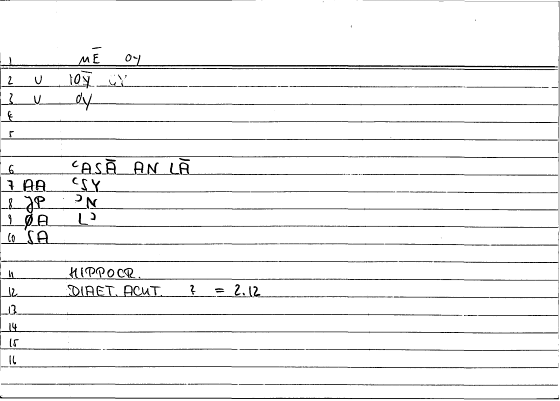 1 MĒ OY
2 U 10Ȳ UY
3 U OY
4
5
6 ʿASĀ AN LĀ
7 AA ʿSY
8 JP ʾN
9 ØA Lʾ
10 SA
11 HIPPOCR.
12 DIAET. ACUT. ? = 2.12
13
14
15
16